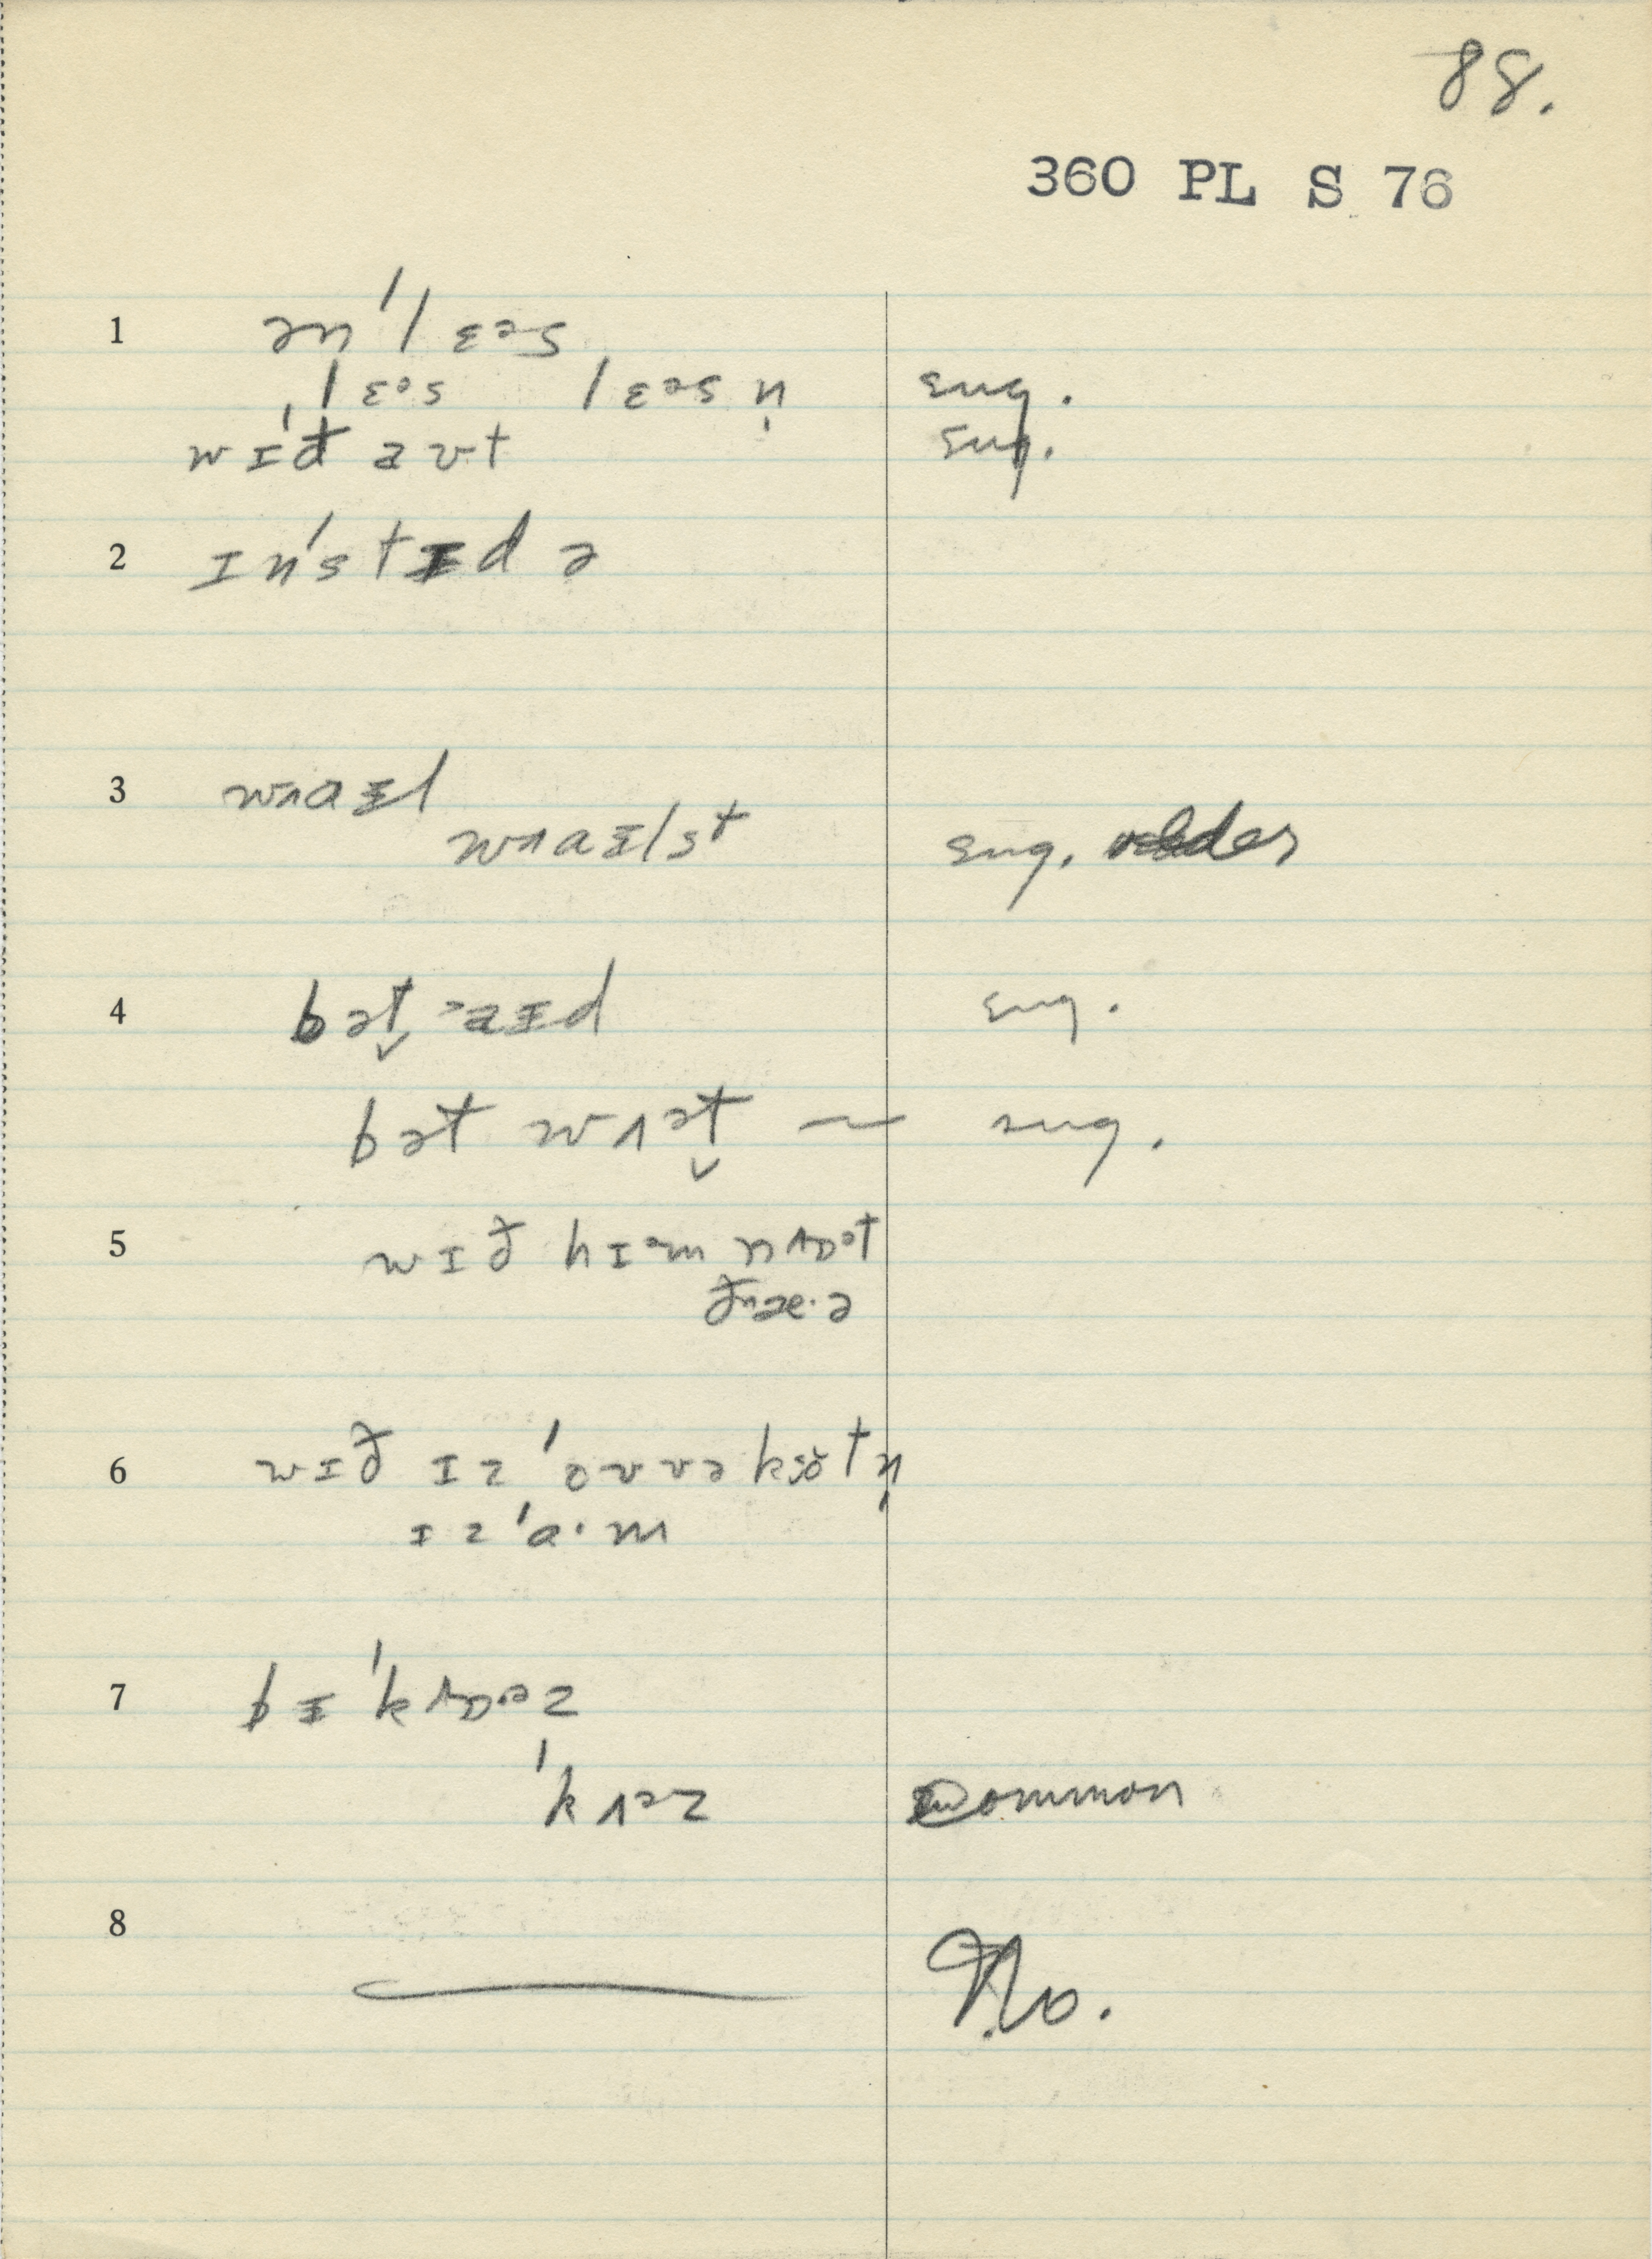 88.
360 PL S 76
1 ən'lɛəs
ˌlɛəs lɛəsn̩ sug.
wɪð aʊt sug.
2 ɪn'stɪd ə
3 wʌaɪl
wʌaɪlst sug. older
4 bət̬ ᵊaɪd sug.
bət wʌət̬ ~ sug.
5 wɪð hɪᵊm nʌɒᵊt
6 wɪð ɪz 'oʊvəkoˇtn̩
ɪz 'a·m
7 bɪ'kʌɒᵊz
'kʌᵊz Common
8 — No.